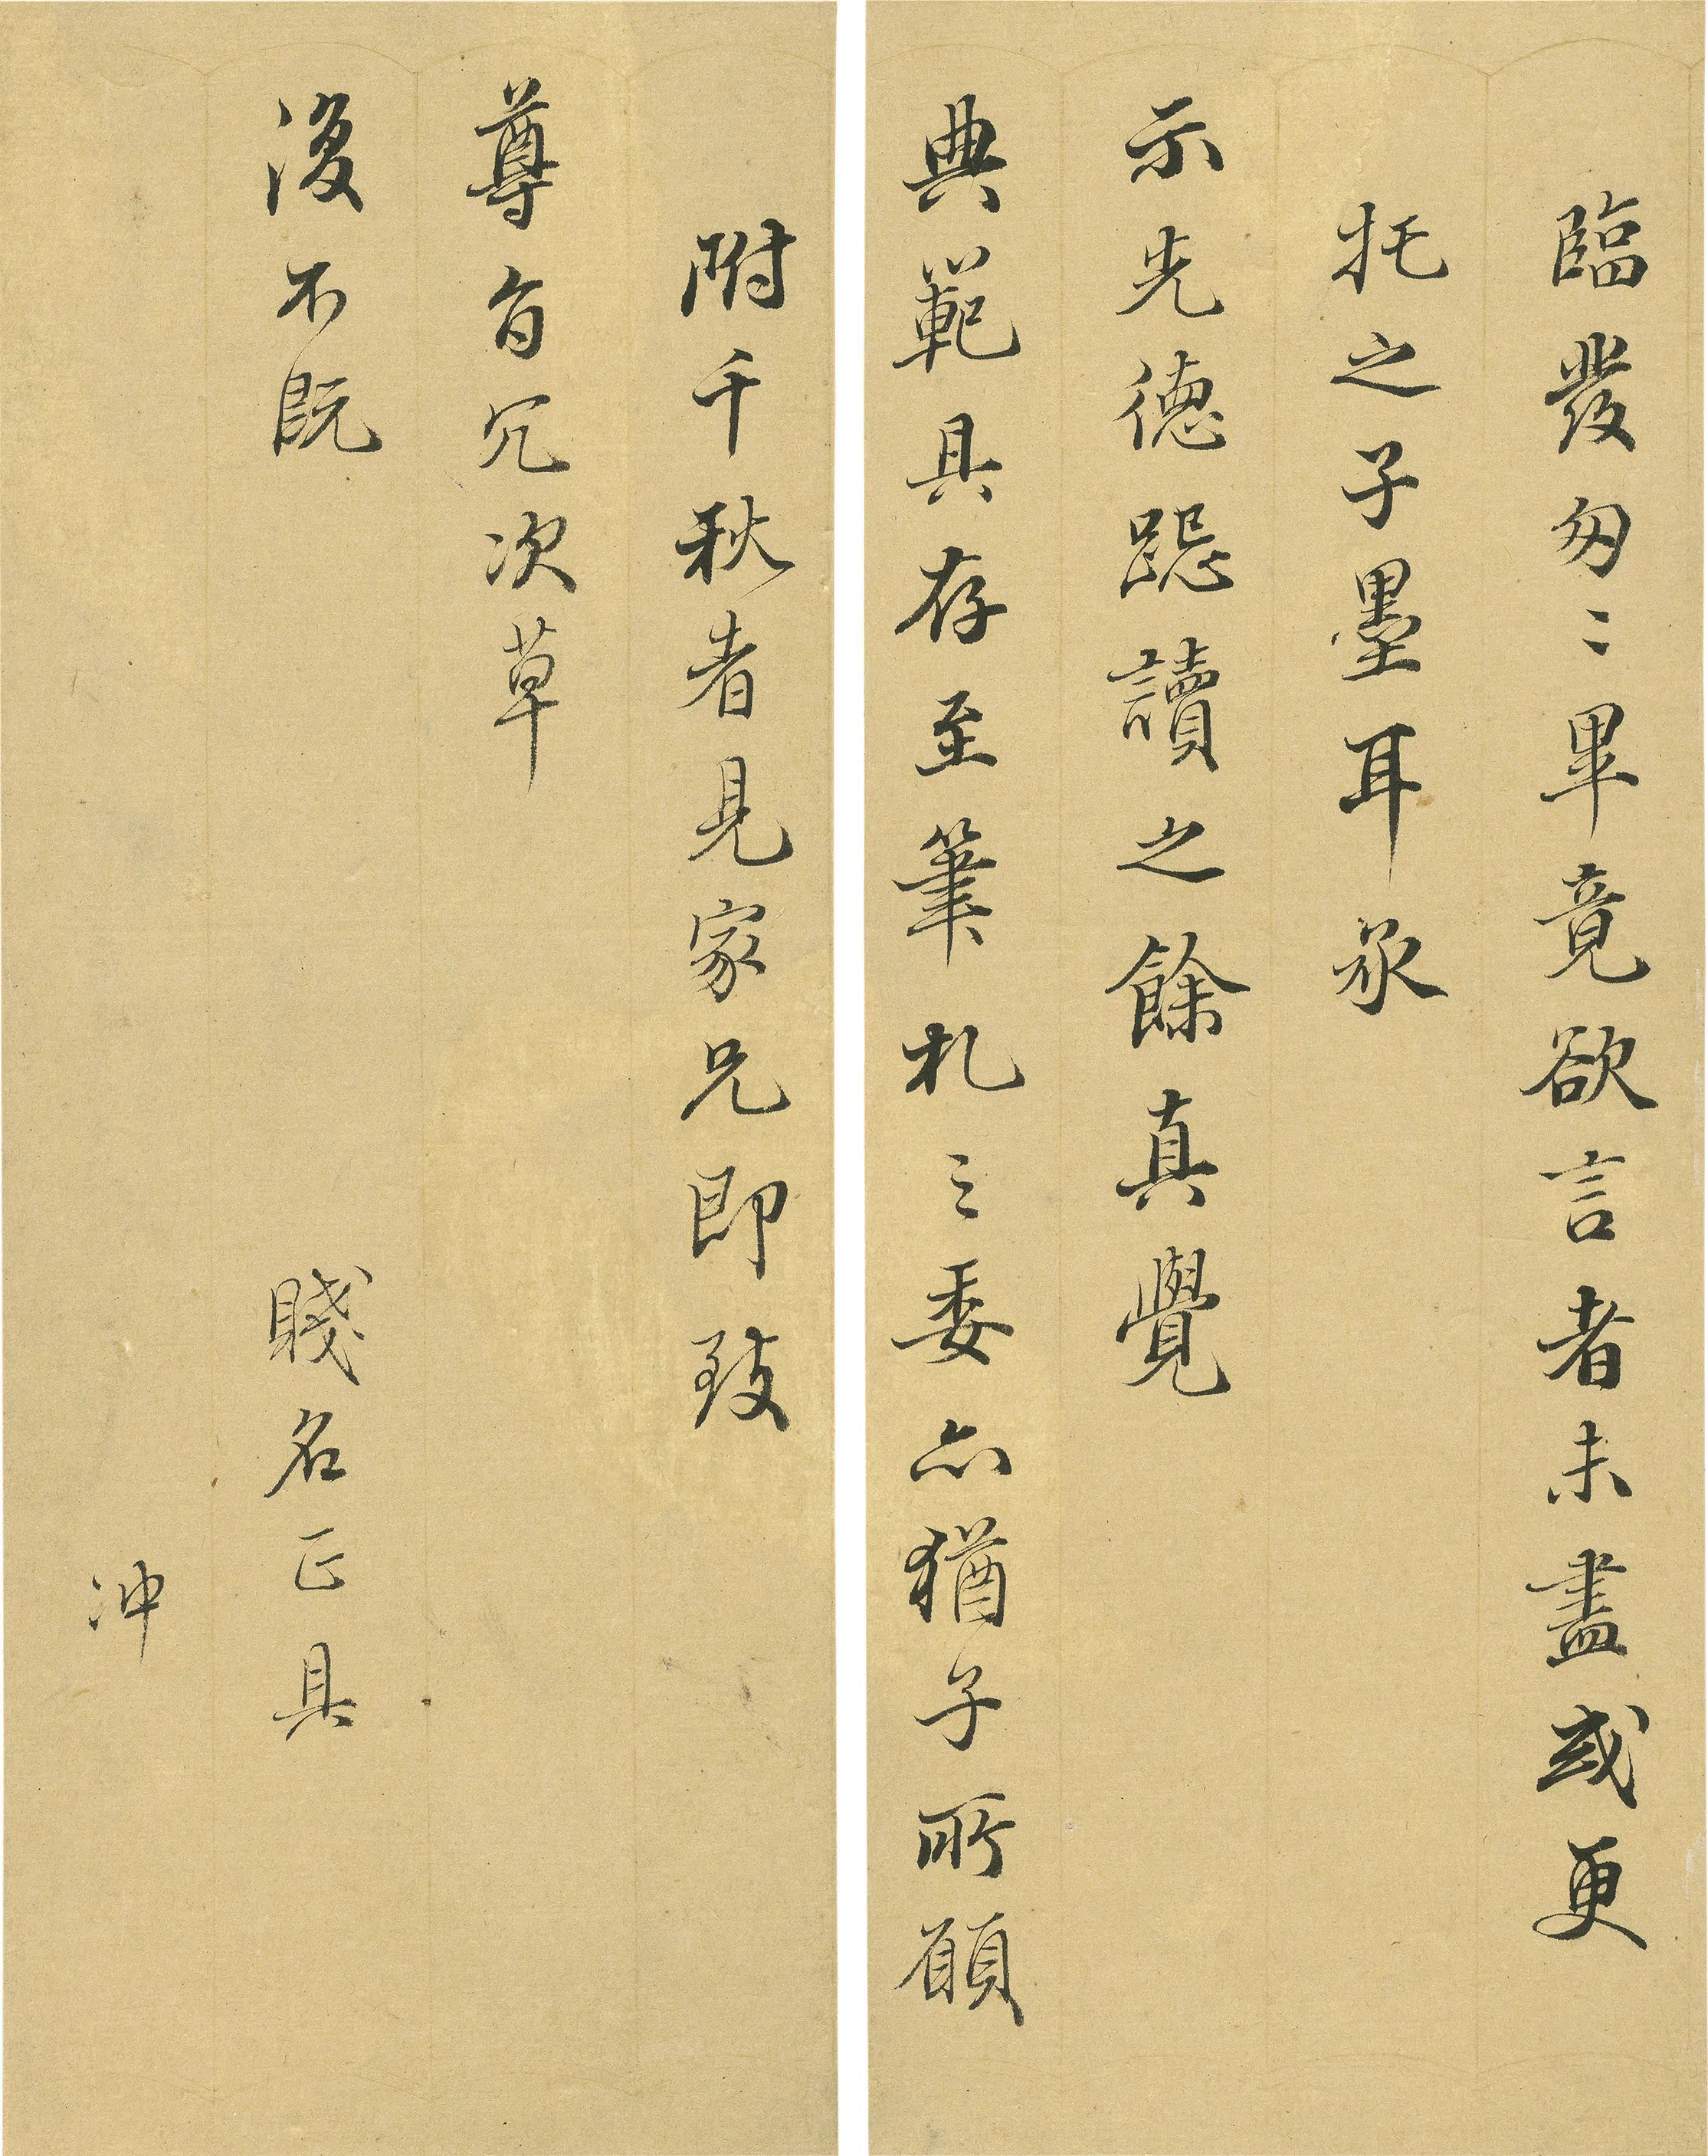 臨發匆〻畢竟欲言者未盡或更
托之子墨耳承
示先德
讀之餘真覺
典範具存至筆札之委亦猶子所願
附千秋者見家兄即致
尊旨冗次草
復不既
賤名正具
沖